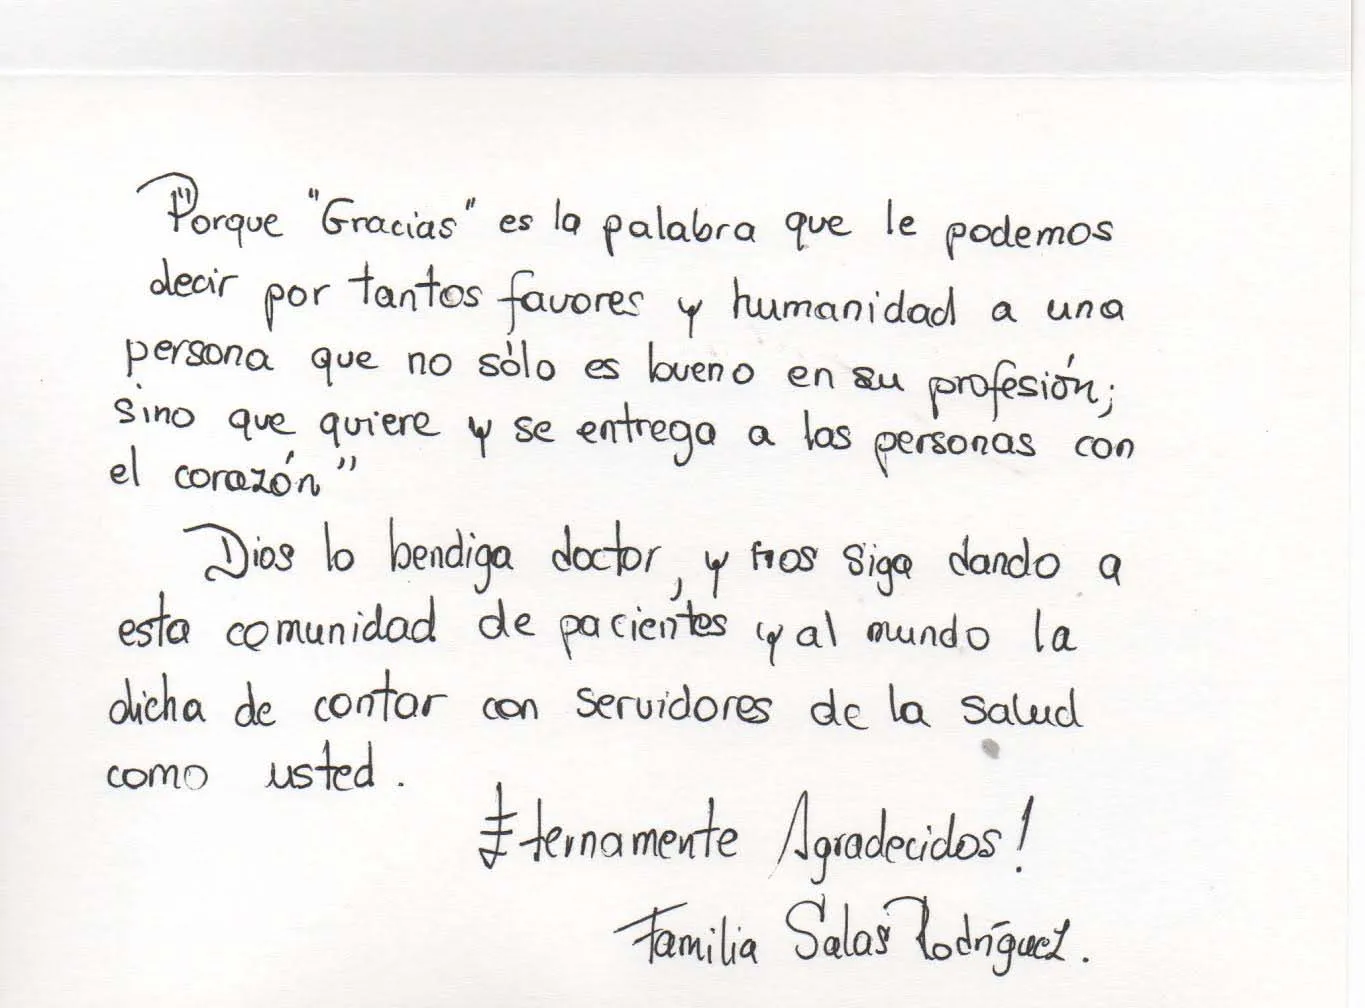 "Porque "Gracias" es la palabra que le podemos
decir por tantos favores y humanidad a una
persona que no sólo es bueno en su profesión;
sino que quiere y se entrega a las personas con
el corazón"
Dios lo bendiga doctor, y nos siga dando a
esta comunidad de pacientes y al mundo la
dicha de contar con servidores de la salud
como usted.
Eternamente Agradecidos!
Familia Salas Rodríguez.